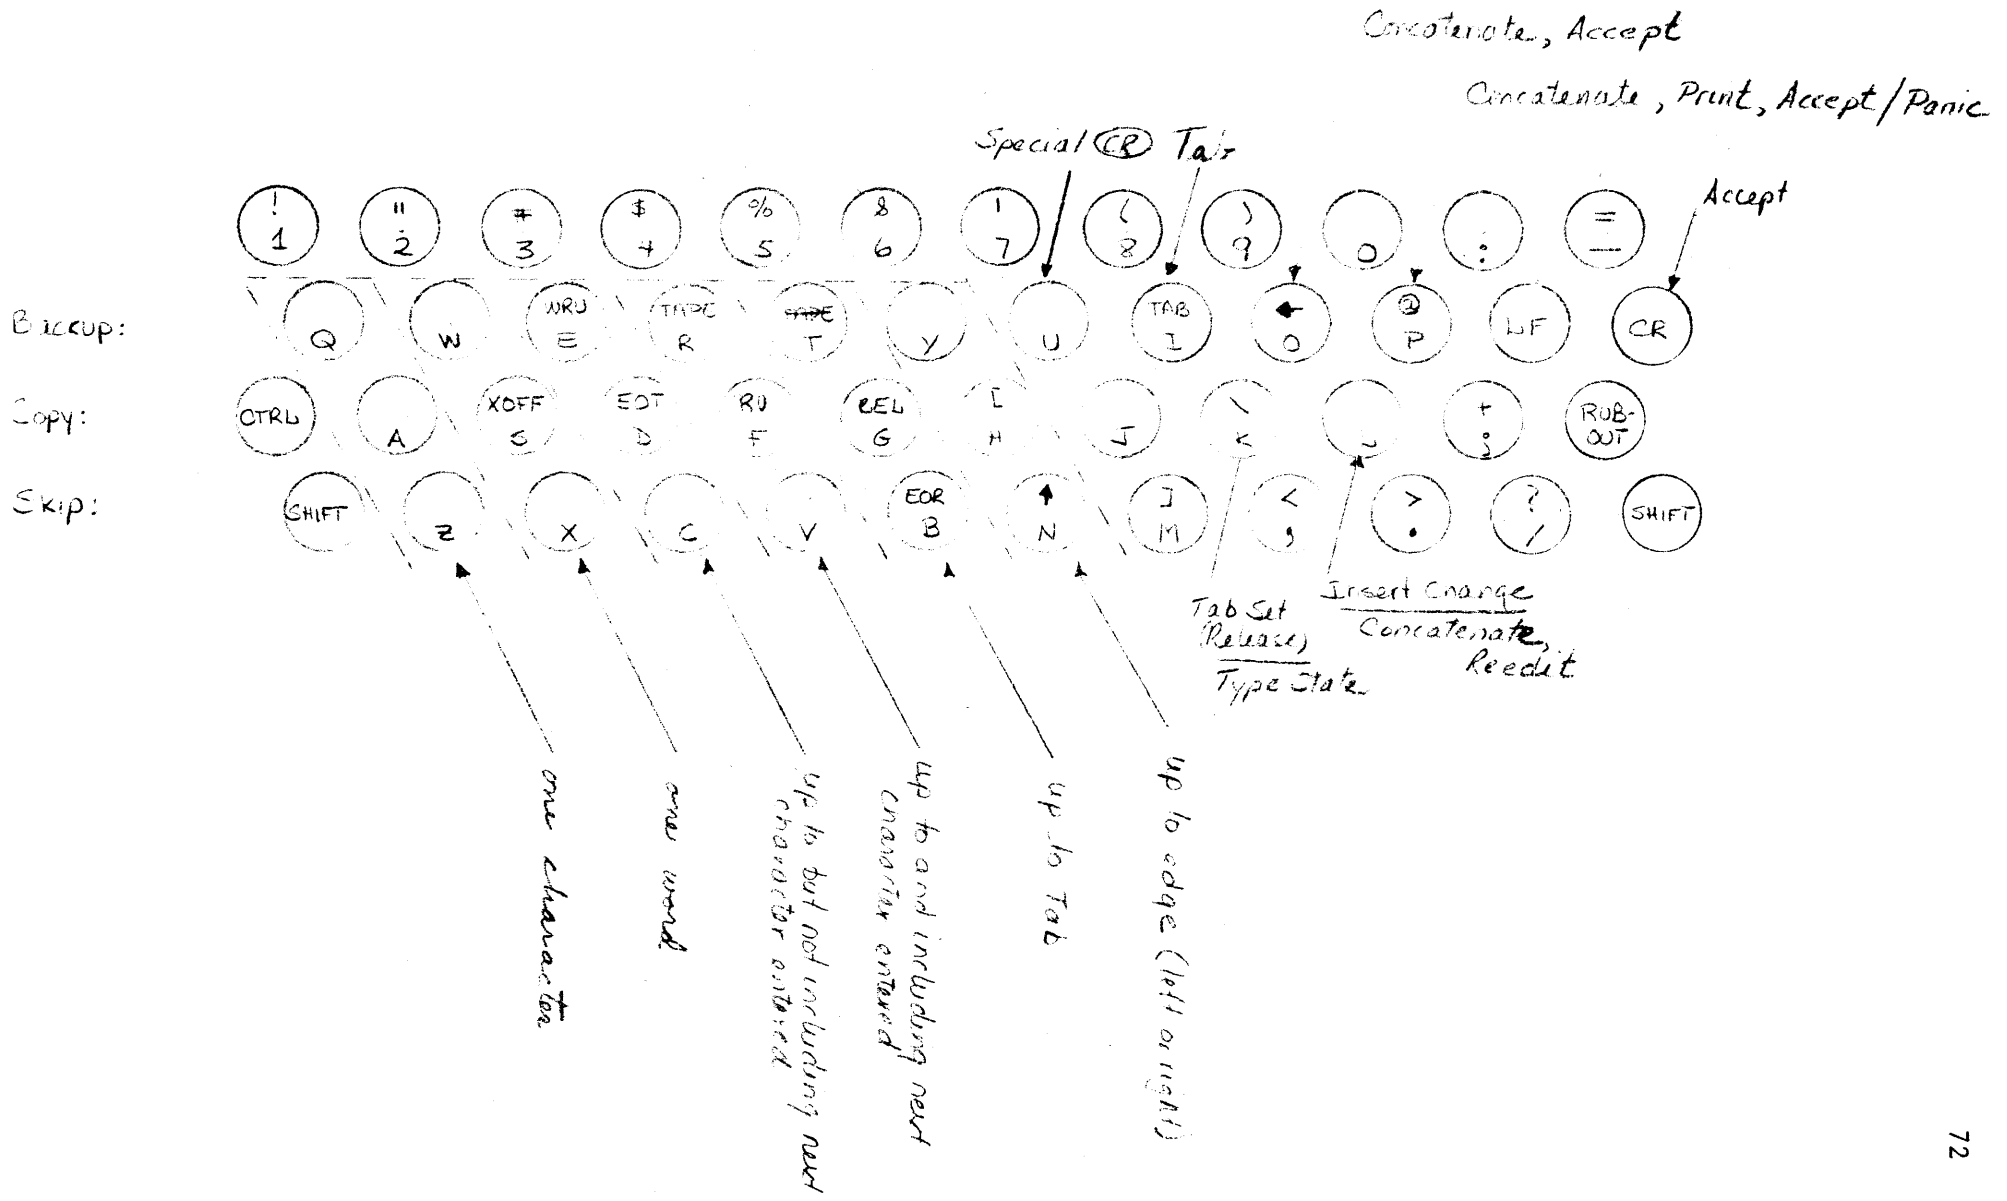 Concatenate, Accept
Concatenate, Print, Accept/Panic
Special CR Tab
Accept
! 1 " 2 # 3 $ 4 % 5 & 6 ' 7 ( 8 ) 9 0 : = —
Backup:
Q W WRU E TAPE R TAPE T Y U TAB I ← O @ P LF CR
Copy:
CTRL A XOFF S EOT D RU F BEL G [ H J \ K L + ; RUB-OUT
Skip:
SHIFT Z X C V EOR B ↑ N ] M < , > . ? / SHIFT
Tab Set
(Release)
Type State
Insert Change
Concatenate,
Reedit
one character
one word
up to but not including next
character entered
up to and including next
character entered
up to Tab
up to edge (left or right)
72